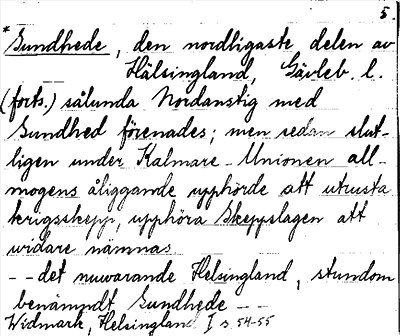 5.
* Sundhede, den nordligaste delen av
Hälsingland, Gävleb. l.
(forts.) sålunda Nordanstig med
Sundhed förenades; men sedan slut-
ligen under Kalmare-Unionen all-
mogens åliggande upphörde att utrusta
krigsskepp, upphöra Skeppslagen att
widare nämnas
-- det nuwarande Helsingland, stundom
benämndt Sundhede --
Widmark, Helsingland I s. 54-55